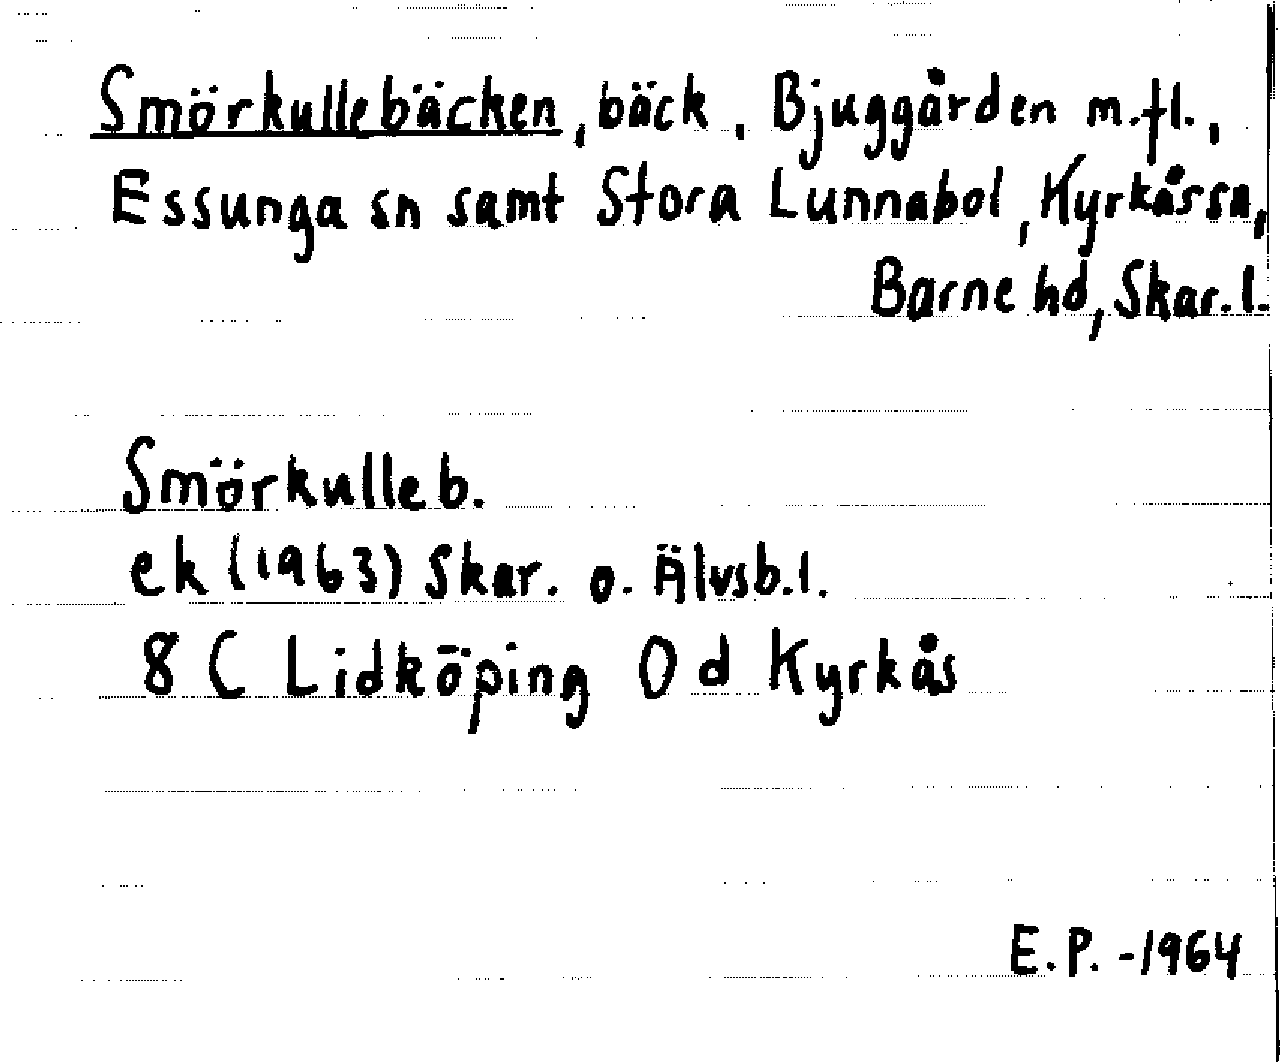 Smörkullebäcken, bäck, Bjuggården m.fl.,
Essunga sn samt Stora Lunnabol, Kyrkås sn,
Barne hd, Skar.l.
Smörkulleb.
ek (1963) Skar. o. Älvsb.l.
8 C Lidköping 0 d Kyrkås
E.P. -1964